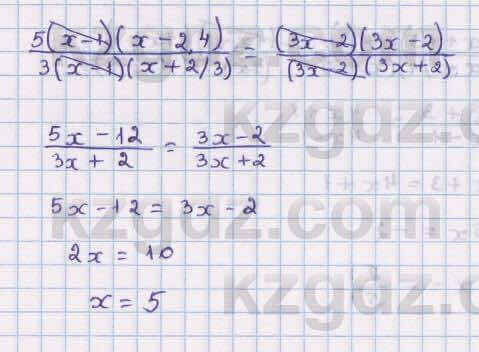 5(x-1)(x-2,4) / 3(x-1)(x+2/3) = (3x-2)(3x-2) / (3x-2)(3x+2)
5x-12 / 3x+2 = 3x-2 / 3x+2
5x-12 = 3x-2
2x = 10
x = 5
kzgdz.com